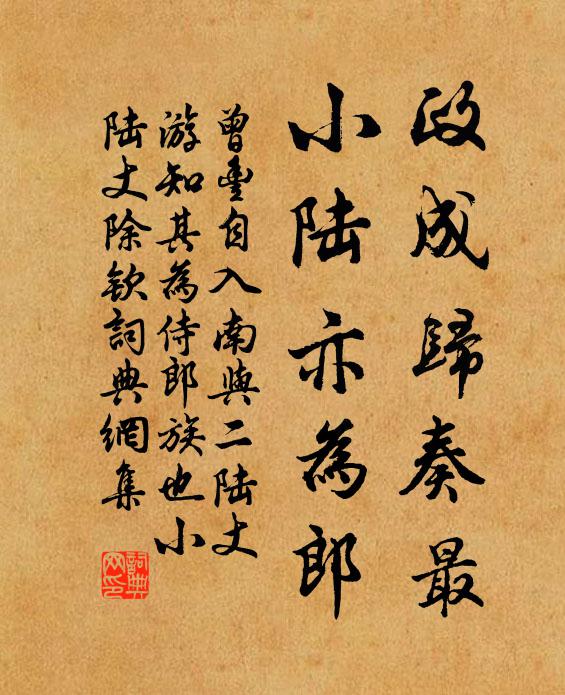 政成歸奏最
小陸亦為郎
曾豐自入南與二陸丈
游知其為侍郎族也小
陸丈除欽詞典網集
詞典网印